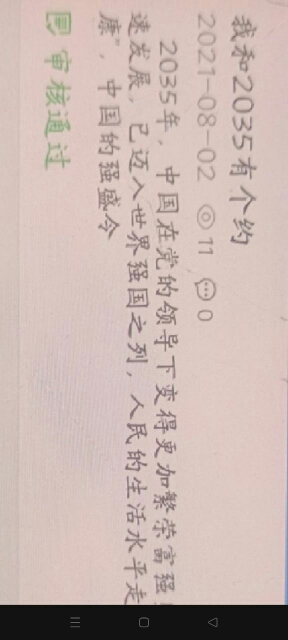 我和2035有个约
2021-08-02 11 0
2035年，中国在党的领导下变得更加繁荣富强
速发展，已迈入世界强国之列，人民的生活水平走
康"，中国的强盛令
审核通过